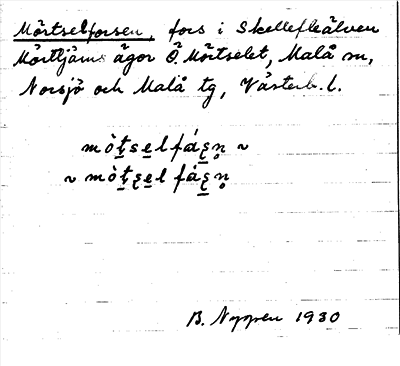 Mörtselforsen, fors i Skellefteälven
Mörttjärns ägor Ö. Mörtselet, Malå sn,
Norsjö och Malå tg, Västerb. l.
mò̀ṱsel fás̨n̥ ~
~ mò̀ṱs̨el fás̨n̥
B. Nyqren 1930